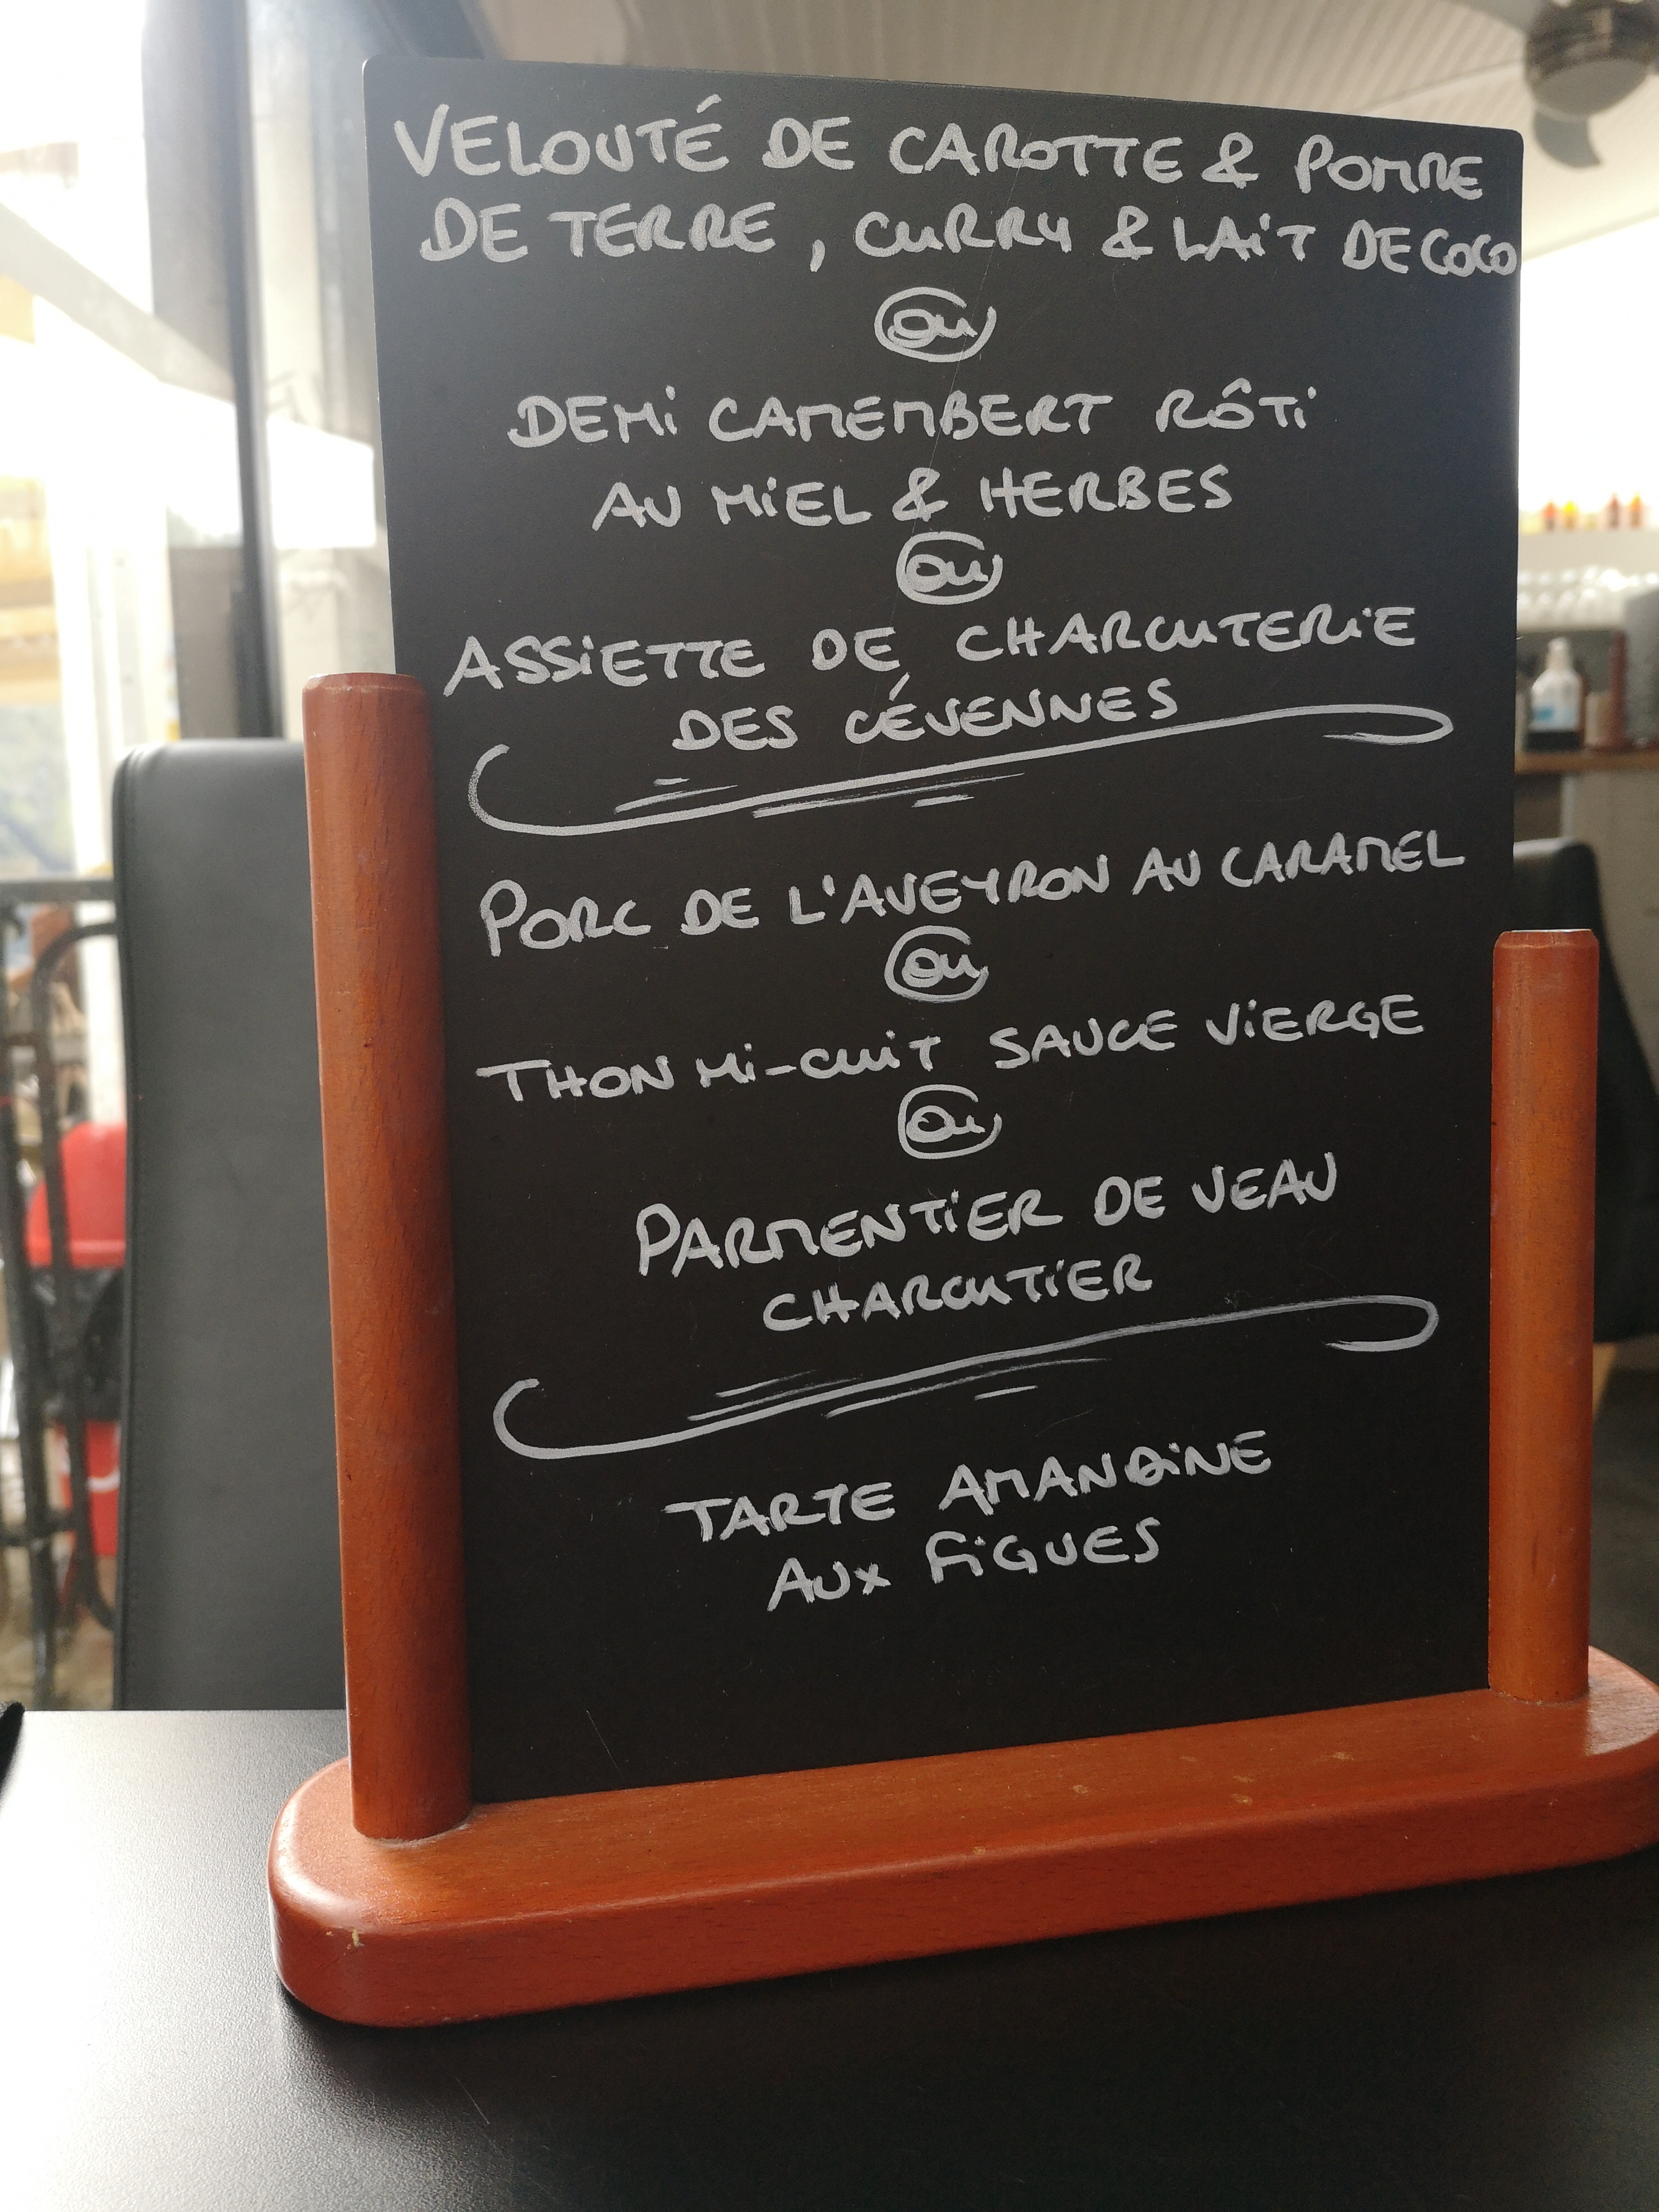 VELOUTÉ DE CAROTTE & POMME
DE TERRE, CURRY & LAIT DE COCO
ou
DEMI CAMEMBERT RÔTI
AU MIEL & HERBES
ou
ASSIETTE DE CHARCUTERIE
DES CÉVENNES
PORC DE L'AVEYRON AU CARAMEL
ou
THON MI-CUIT SAUCE VIERGE
ou
PARMENTIER DE VEAU
CHARCUTIER
TARTE AMANDINE
AUX FIGUES